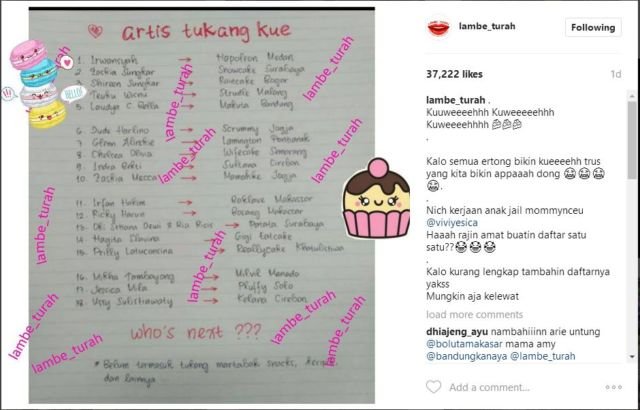 artis tukang kue
1. Irwansyah → Napoleon Medan
2. Zaskia Sungkar → Snowcake Surabaya
3. Shireen Sungkar → Raincake Bogor
4. Teuku Wisnu → Strudle Malang
5. Laudya C. Bella → Makuta Bandung
6. Dude Harlino → Scrummy Jogja
7. Glenn Alinskie → Lamington Pontianak
8. Chelsea Olivia → Wifecake Semarang
9. Indra Bekti → Sultana Cirebon
10. Zaskia Mecca → Mamahke Jogja
11. Irfan Hakim → Baklave Makassar
12. Ricky Harun → Bosang Makassar
13. Oki Setiana Dewi & Ria Ricis → Patata Surabaya
14. Nagita Slavina → Gigi Eatcake
15. Prilly Latuconsina → Reallycake Khatulistiwa
16. Mikha Tambayong → Milvil Menado
17. Jessica Mila → Pluffy Solo
18. Ussy Sulistiawaty → Kelana Cirebon
who's next ???
* Belum termasuk tukang martabak snacks,
dan lainnya ...
HELLO!
lambe_turah
lambe_turah
lambe_turah
lambe_turah
lambe_turah
lambe_turah
lambe_turah
lambe_turah
lambe_turah
lambe_turah
lambe_turah
lambe_turah
Following
37,222 likes
1d
lambe_turah .
Kuuweeeehhh Kuweeeeehhh
Kuweeeehhhh
.
Kalo semua ertong bikin kueeeehh trus
yang kita bikin appaaah dong
.
Nich kerjaan anak jail mommynceu
@viviyesica
Haaah rajin amat buatin daftar satu
satu??
.
Kalo kurang lengkap tambahin daftarnya
yakss
Mungkin aja kelewat
load more comments
dhiajeng_ayu nambahiiinn arie untung
@bolutamakasar mama amy
@bandungkanaya @lambe_turah
Add a comment...